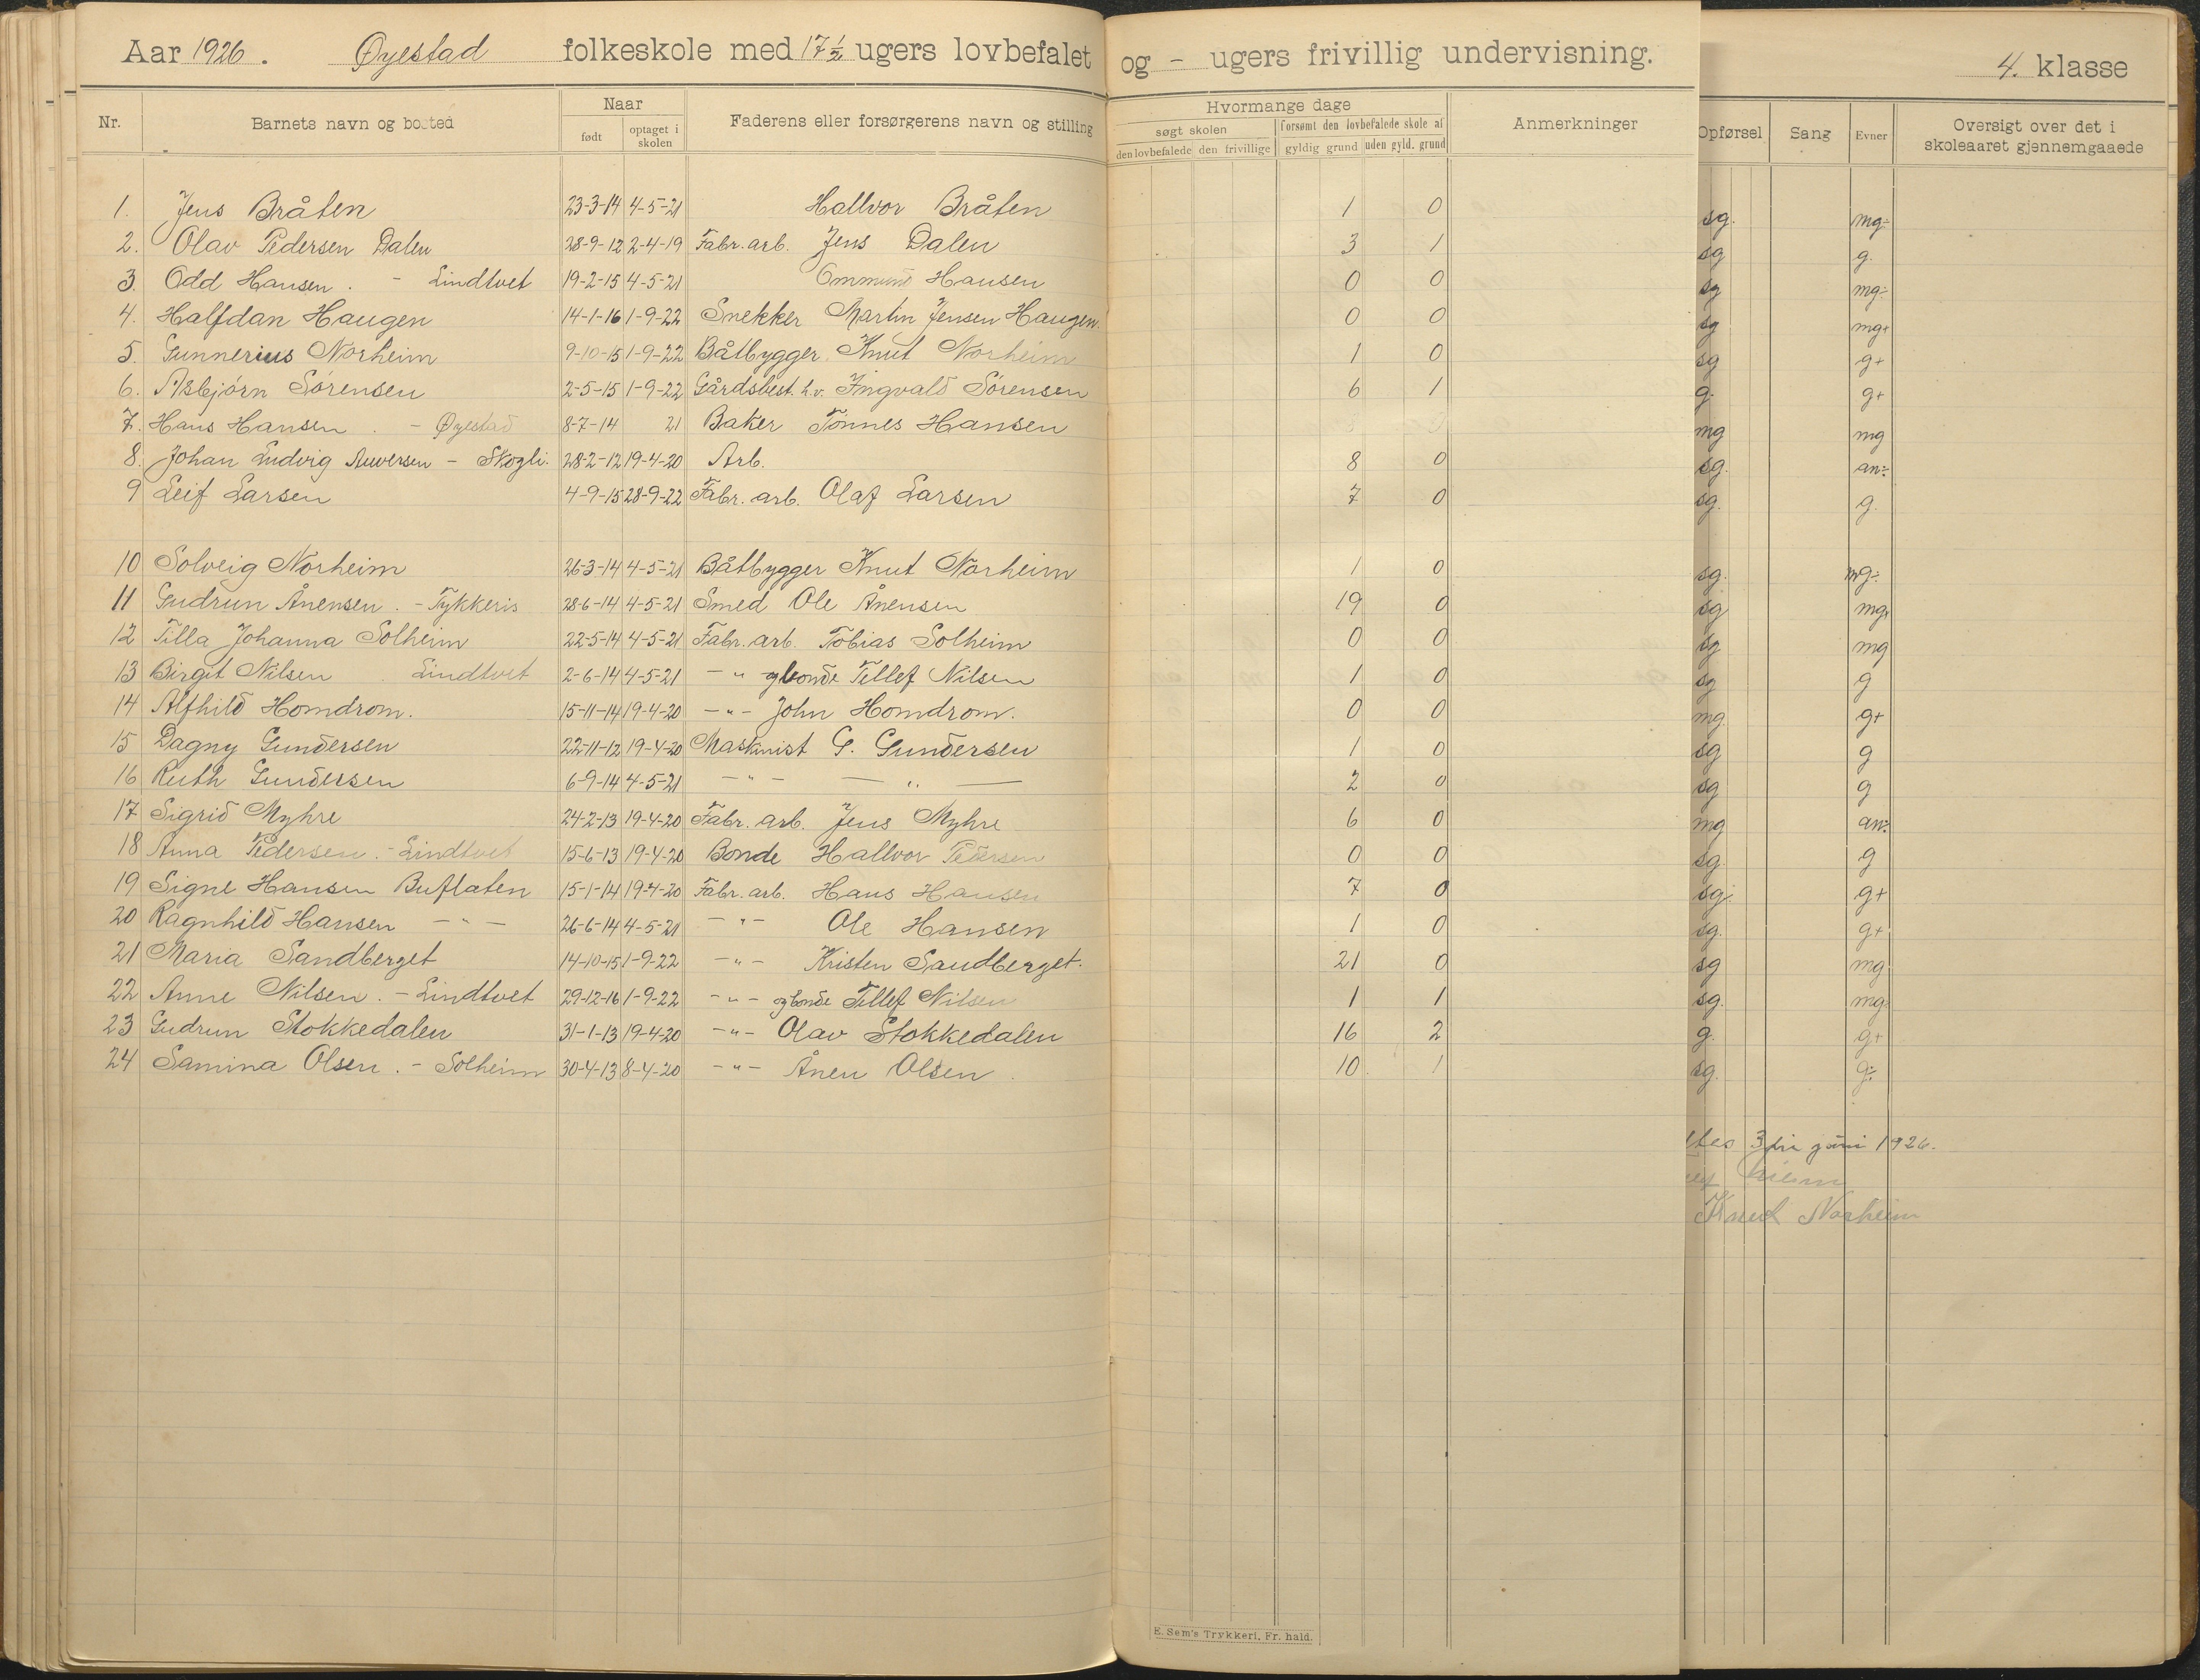 Aar 1926. Øyestad folkeskole med 17 1/2 ugers lovbefalet og - ugers frivillig undervisning. 4. klasse
Nr. Barnets navn og bosted Naar født optaget i skolen Faderens eller forsørgerens navn og stilling Hvormange dage søgt skolen den lovbefalede den frivillige forsømt den lovbefalede skole af gyldig grund uden gyld. grund Anmerkninger Opførsel Sang Evner Oversigt over det i skoleaaret gjennemgaaede
1. Jens Bråten 23-3-14 4-5-21 Hallvor Bråten 1 0 sg. mg÷
2. Olav Pedersen Dalen 28-9-12 2-4-19 Fabr. arb. Jens Dalen 3 1 sg g.
3. Odd Hansen. - Lindtvet 19-2-15 4-5-21 Ommund Hansen 0 0 sg mg÷
4. Halfdan Haugen 14-1-16 1-9-22 Snekker Martin Jensen Haugen. 0 0 sg mg+
5. Gunnerius Norheim 9-10-15 1-9-22 Båtbygger Knut Norheim 1 0 sg g+
6. Asbjörn Sörensen 2-5-15 1-9-22 Gårdsbest. h.v. Ingvald Sörensen 6 1 g. g+
7. Hans Hansen. - Øyestad 8-7-14 21 Baker Tönnes Hansen mg mg
8. Johan Ludvig - Skogli. 28-2-12 19-4-20 Arb. 8 0 sg. an÷
9 Leif Larsen 4-9-15 28-9-22 Fabr. arb. Olaf Larsen 7 0 sg. g.
10 Solveig Norheim 26-3-14 4-5-21 Båtbygger Knut Norheim 1 0 sg. mg÷
11 Gudrun Ånensen. - Tykkeris 28-6-14 4-5-21 Smed Ole Ånensen 19 0 sg mg+
12 Tilla Johanna Solheim 22-5-14 4-5-21 Fabr. arb. Tobias Solheim 0 0 sg mg
13 Birgit Nilsen. Lindtvet 2-6-14 4-5-21 - " - og bonde Tellef Nilsen 1 0 sg g
14 Alfhild Homdrom. 15-11-14 19-4-20 - " - John Homdrom. 0 0 mg. g+
15 Dagny Gundersen 22-11-12 19-4-20 Maskinist G. Gundersen 1 0 sg g
16 Ruth Gundersen 6-9-14 4-5-21 - " - — " — 2 0 sg g
17 Sigrid Myhre 24-2-13 19-4-20 Fabr. arb. Jens Myhre 6 0 mg an÷
18 Anna Pedersen. - Lindtvet 15-6-13 19-4-20 Bonde Hallvor Pedersen 0 0 sg. g
19 Signe Hansen Buflaten 15-1-14 19-4-20 Fabr. arb. Hans Hansen 7 0 sg. g+
20 Ragnhild Hansen - " - 26-6-14 4-5-21 - " - Ole Hansen 1 0 sg. g+
21 Maria Sandberget 14-10-15 1-9-22 - " - Kristen Sandberget. 21 0 sg mg
22 Anne Nilsen. - Lindtvet 29-12-16 1-9-22 - " - og bonde Tellef Nilsen 1 1 sg. mg
23 Gudrun Stokkedalen 31-1-13 19-4-20 - " - Olav Stokkedalen 16 2 g. g+
24 Samina Olsen. - Solheim 30-4-13 8-4-20 - " - Ånen Olsen. 10 1 sg. g÷
3die juni 1926.
Knut Norheim
E. Sem's Trykkeri, Fr. hald.